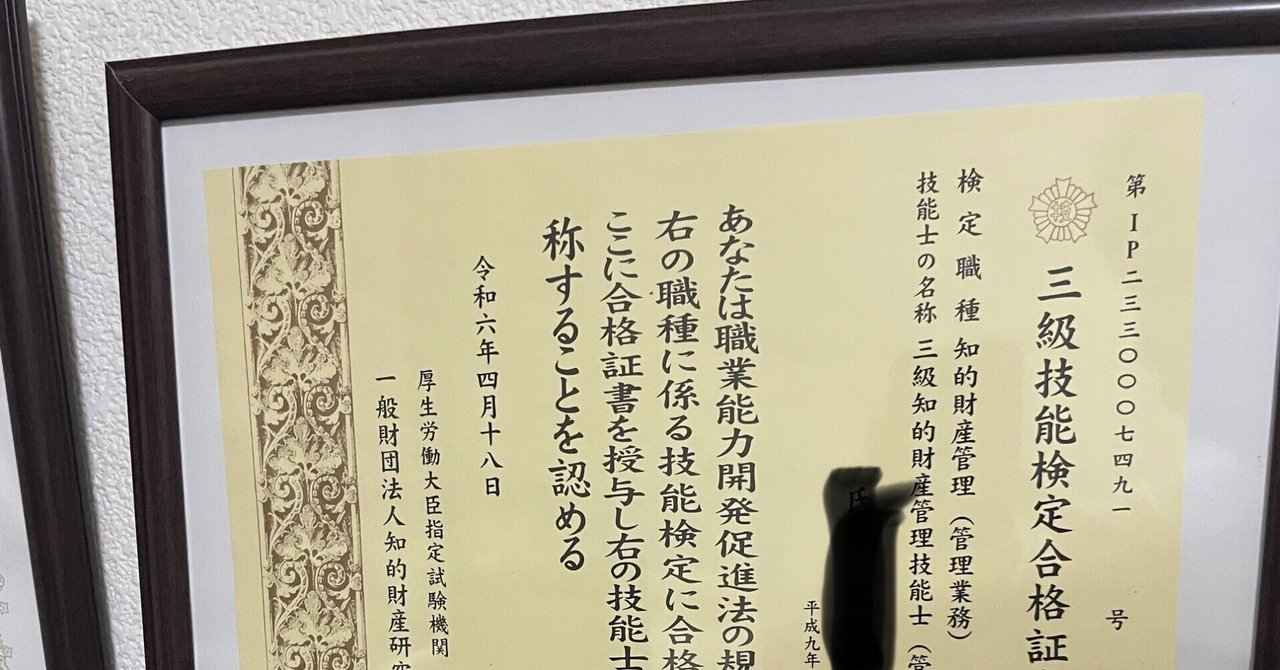 第IP二三三〇〇〇七四九一号
技
三級技能検定合格証
検定職種 知的財産管理(管理業務)
技能士の名称 三級知的財産管理技能士(管
氏
平成九年
あなたは職業能力開発促進法の規
右の職種に係る技能検定に合格
ここに合格証書を授与し右の技能士
称することを認める
令和六年四月十八日
厚生労働大臣指定試験機関
一般財団法人知的財産研究